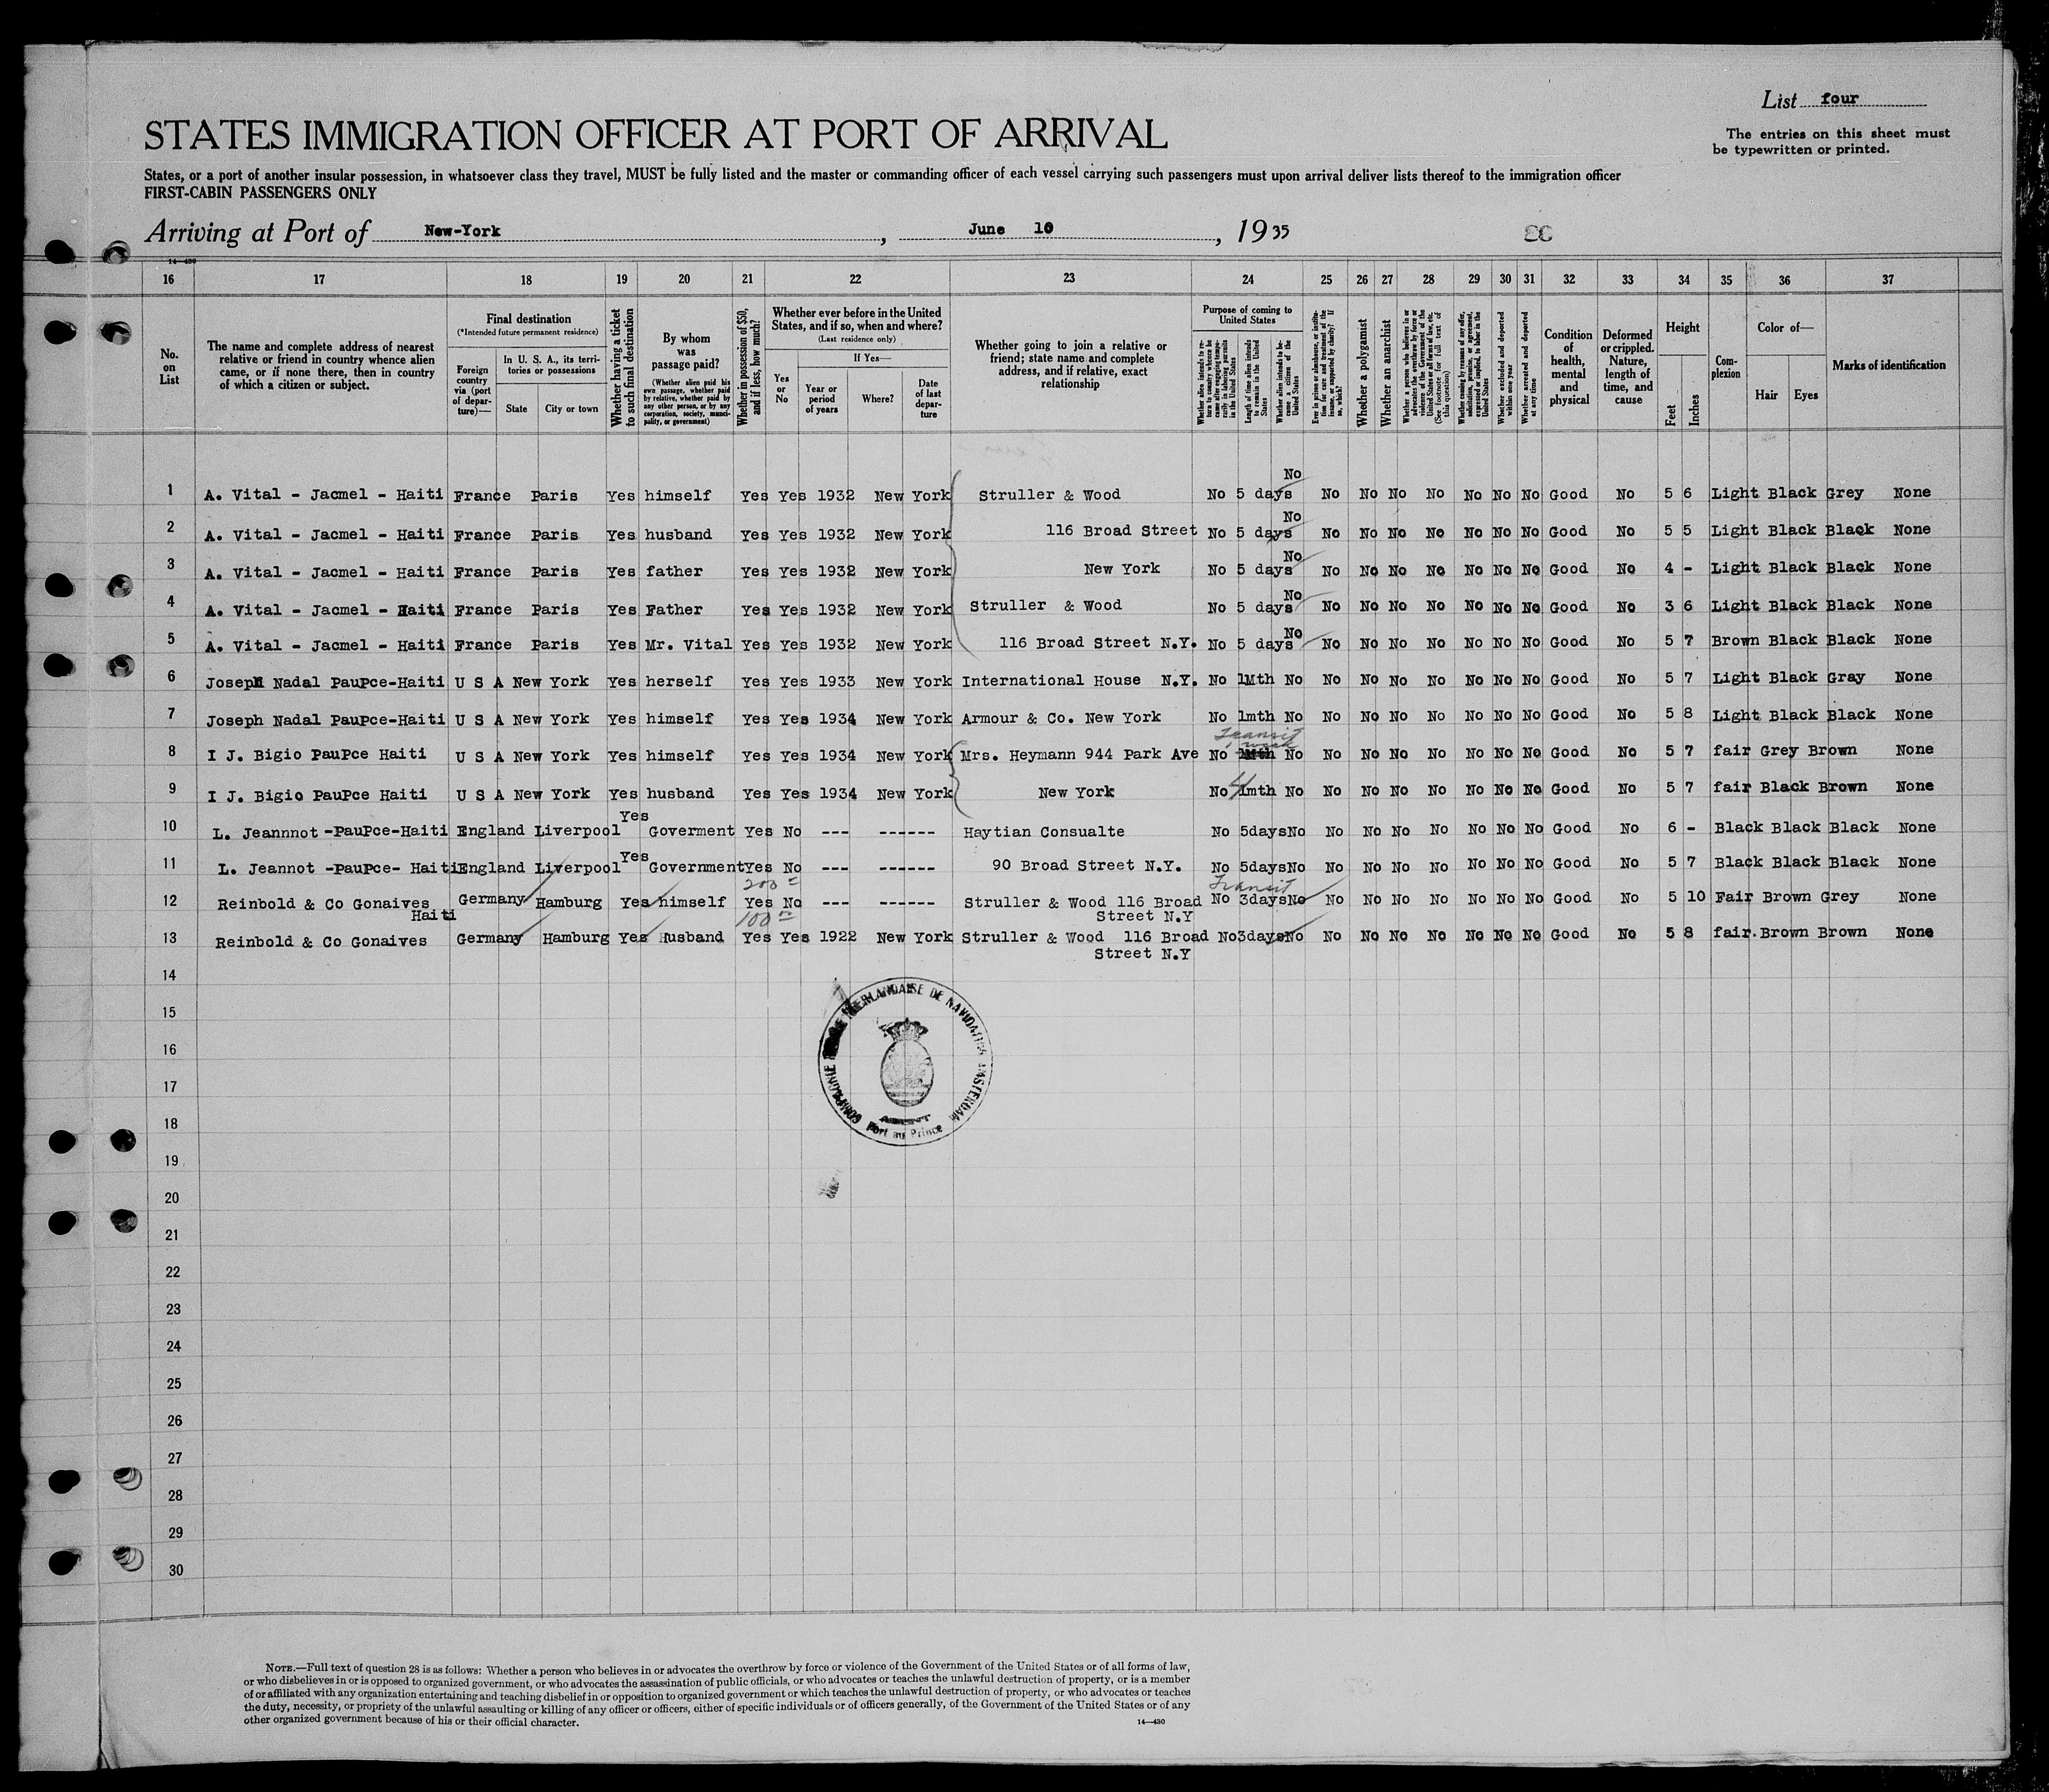 List four
STATES IMMIGRATION OFFICER AT PORT OF ARRIVAL
The entries on this sheet must
be typewritten or printed.
States, or a port of another insular possession, in whatsoever class they travel, MUST be fully listed and the master or commanding officer of each vessel carrying such passengers must upon arrival deliver lists thereof to the immigration officer
FIRST-CABIN PASSENGERS ONLY
Arriving at Port of New-York, June 10, 1935
14—430
16 17 18 19 20 21 22 23 24 25 26 27 28 29 30 31 32 33 34 35 36 37
No. on List
The name and complete address of nearest relative or friend in country whence alien came, or if none there, then in country of which a citizen or subject.
Final destination
(*Intended future permanent residence)
Foreign country via (port of departure)—
In U. S. A., its territories or possessions
State
City or town
Whether having a ticket to such final destination
By whom was passage paid?
(Whether alien paid his own passage, whether paid by relative, whether paid by any other person, or by any corporation, society, municipality, or government)
Whether in possession of $50, and if less, how much?
Whether ever before in the United States, and if so, when and where?
(Last residence only)
If Yes—
Yes or No
Year or period of years
Where?
Date of last departure
Whether going to join a relative or friend; state name and complete address, and if relative, exact relationship
Purpose of coming to United States
Whether alien intends to return to country whence he came after engaging temporarily in laboring pursuits in the United States
Length of time alien intends to remain in the United States
Whether alien intends to become a citizen of the United States
Ever in prison or almshouse, or institution for care and treatment of the insane, or supported by charity? If so, which?
Whether a polygamist
Whether an anarchist
Whether a person who believes in or advocates the overthrow by force or violence of the Government of the United States or all forms of law, etc. (See footnote for full text of this question)
Whether coming by reasons of any offer, solicitation, promise, or agreement, expressed or implied, to labor in the United States
Whether excluded and deported within one year
Whether arrested and deported at any time
Condition of health, mental and physical
Deformed or crippled. Nature, length of time, and cause
Height
Feet
Inches
Complexion
Color of—
Hair
Eyes
Marks of identification
1 A. Vital - Jacmel - Haiti France Paris Yes himself Yes Yes 1932 New York Struller & Wood No 5 days No No No No No No No No Good No 5 6 Light Black Grey None
2 A. Vital - Jacmel - Haiti France Paris Yes husband Yes Yes 1932 New York 116 Broad Street No 5 days No No No No No No No No Good No 5 5 Light Black Black None
3 A. Vital - Jacmel - Haiti France Paris Yes father Yes Yes 1932 New York New York No 5 days No No No No No No No No Good No 4 - Light Black Black None
4 A. Vital - Jacmel - Haiti France Paris Yes Father Yes Yes 1932 New York Struller & Wood No 5 days No No No No No No No No Good No 3 6 Light Black Black None
5 A. Vital - Jacmel - Haiti France Paris Yes Mr. Vital Yes Yes 1932 New York 116 Broad Street N.Y. No 5 days No No No No No No No No Good No 5 7 Brown Black Black None
6 Joseph Nadal PauPce-Haiti U S A New York Yes herself Yes Yes 1933 New York International House N.Y. No 1Mth No No No No No No No No Good No 5 7 Light Black Gray None
7 Joseph Nadal PauPce-Haiti U S A New York Yes himself Yes Yes 1934 New York Armour & Co. New York No 1mth No No No No No No No No Good No 5 8 Light Black Black None
Transit
8 I J. Bigio PauPce Haiti U S A New York Yes himself Yes Yes 1934 New York Mrs. Heymann 944 Park Ave No 1 week No No No No No No No No Good No 5 7 fair Grey Brown None
9 I J. Bigio PauPce Haiti U S A New York Yes husband Yes Yes 1934 New York New York No 1mth No No No No No No No No Good No 5 7 fair Black Brown None
10 L. Jeannnot -PauPce-Haiti England Liverpool Yes Goverment Yes No --- ------ Haytian Consualte No 5days No No No No No No No No Good No 6 - Black Black Black None
11 L. Jeannot -PauPce- Haiti England Liverpool Yes Government Yes No --- ------ 90 Broad Street N.Y. No 5days No No No No No No No No Good No 5 7 Black Black Black None
200 Transit
12 Reinbold & Co Gonaives Germany Hamburg Yes himself Yes No --- ------ Struller & Wood 116 Broad No 3days No No No No No No No No Good No 5 10 Fair Brown Grey None
Haiti 100 Street N.Y
13 Reinbold & Co Gonaives Germany Hamburg Yes Husband Yes Yes 1922 New York Struller & Wood 116 Broad No 3days No No No No No No No No Good No 5 8 fair. Brown Brown None
Street N.Y
14
15
16
17
18
19
20
21
22
23
24
25
26
27
28
29
30
COMPAGNIE NEERLANDAISE DE NAVIGATION AMSTERDAM
AGENT
Port au Prince
NOTE.—Full text of question 28 is as follows: Whether a person who believes in or advocates the overthrow by force or violence of the Government of the United States or of all forms of law,
or who disbelieves in or is opposed to organized government, or who advocates the assassination of public officials, or who advocates or teaches the unlawful destruction of property, or is a member
of or affiliated with any organization entertaining and teaching disbelief in or opposition to organized government or which teaches the unlawful destruction of property, or who advocates or teaches
the duty, necessity, or propriety of the unlawful assaulting or killing of any officer or officers, either of specific individuals or of officers generally, of the Government of the United States or of any
other organized government because of his or their official character.
14—430